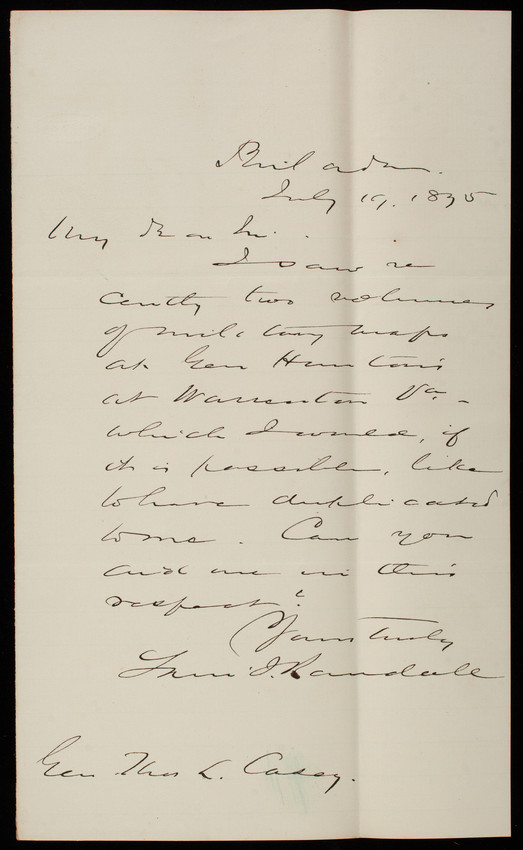 Philada.
July 19. 1875
My Dear Sir.
I saw re
cently two volumes
of military maps
at Gen Hunton's
at Warrenton Va -
which I would, if
it is possible, like
to have duplicated
to me. Can you
aid me in this
respect?
Yours truly
Sam. J. Randall
Gen Thos L. Casey.